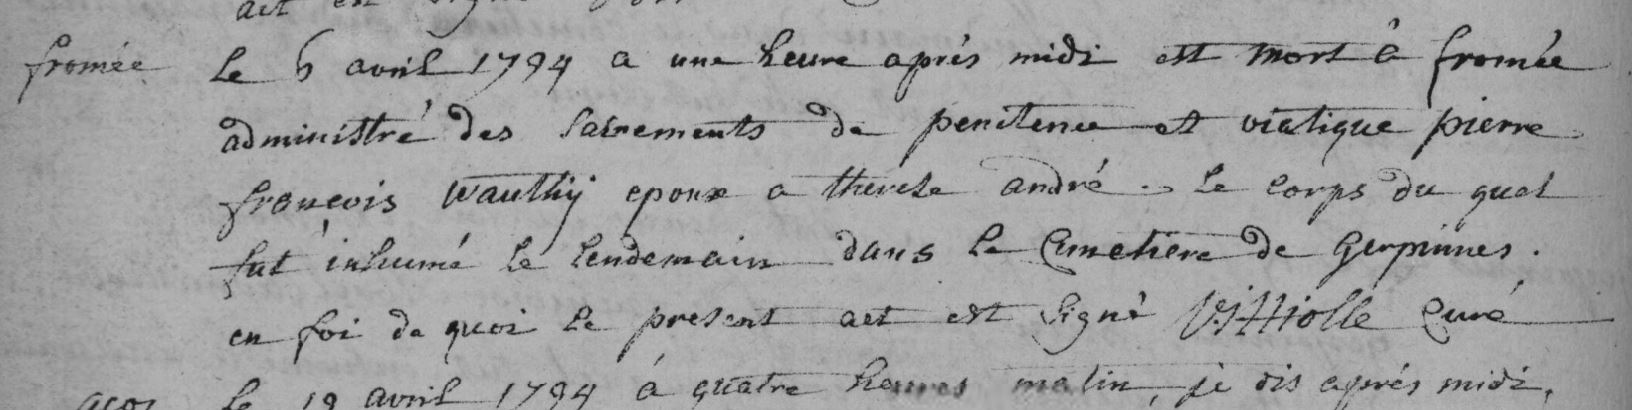 act est signé
fromée le 6 avril 1794 a une heure aprés midi est mort à fromée
administré des sacrements de penitence et viatique pierre
françois wauthÿ epoux a therese andré . le corps du quel
fut inhumé le lendemain dans le cimetiere de Gerpinnes .
en foi de quoi le present act est signé Curé
acoz le 19 avril 1794 à quatre heures matin, je dis aprés midi,